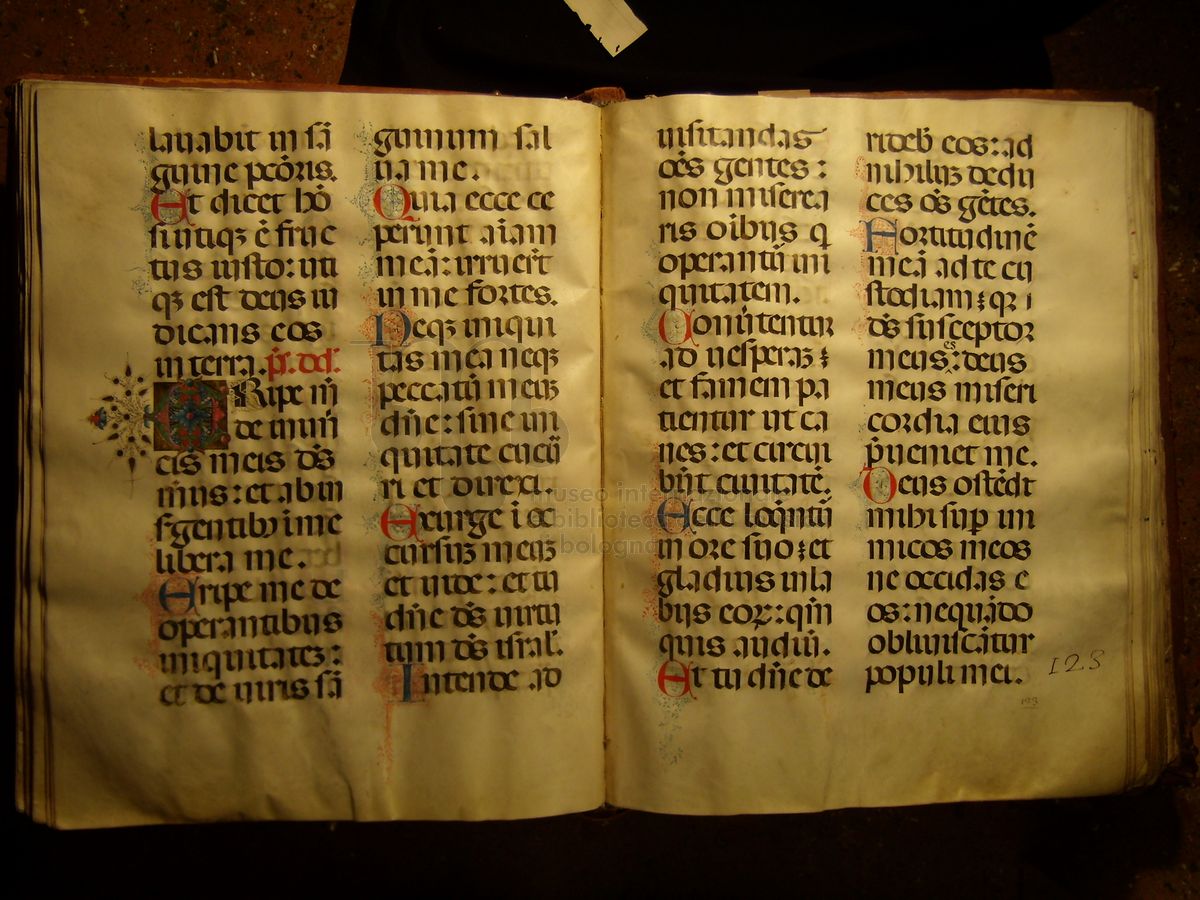 lauabit in sã
guine pcc̃oris.
Et dicet hõ
si utiqꝫ ẽ fruc
tus iusto: uti
qꝫ est deus iu
dicans eos
in terra. p̃s. dd̃.
ERipe m̃
de inimi
cis meis d̃s
m̃us: et ab in
surgentibꝫ ĩ me
libera me.
Eripe me de
operantibus
iniquitatẽ:
et de uiris sã
guinum sal
ua me.
Quia ecce ce
perunt aĩam
meã: irruer̃t
in me fortes.
Neqꝫ iniqui
tas mea neqꝫ
peccatũ meuꝫ
dñe: sine in
iquitate cucur
ri et direxi.
Exurge ĩ oc
cursuꝫ meuꝫ
et uide: et tu
dñe d̃s uirtu
tum d̃s isrãl.
Intende ad
uisitandas
oẽs gentes:
non miserea
ris oĩbus q
operantũ ini
quitatem.
Conũtentur
ad uesperaꝫ:
et famem pa
tientur ut ca
nes: et circui
bũt ciuitatẽ.
Ecce loq̃ntũ
in ore suo: et
gladius in la
biis eoꝝ: qm̃
quis audiũ.
Et tu dñe de
rideb̃ eos: ad
nihiluꝫ dedu
ces oẽs gẽtes.
Fortitudinẽ
meã ad te cu
stodiam: qꝛ
d̃s susceptor
meus es: deus
meus miseri
cordia eius
p̃ueniet me.
Deus ostẽdt
mihi sup̃ ini
micos meos
ne occidas e
os: nequãdo
obliuiscãtur
populi mei.
123
123
museo internazionale
biblioteca
bologna